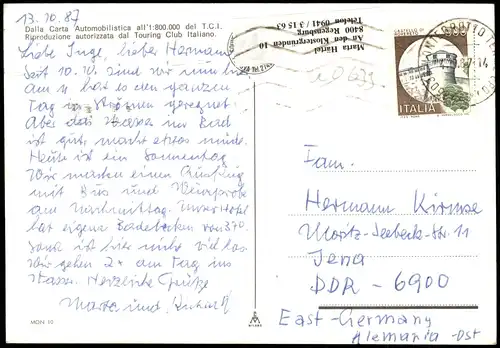 13.10.87
Dalla Carta Automobilistica all'1:800.000 del T.C.I.
Riproduzione autorizzata dal Touring Club Italiano.
Liebe Inge, lieber Hermann
Seit 10.10. sind wir nun hier
an u hat es den ganzen
Tag in Strömen geregnet.
Aber das Wasser im Bad
ist gut, macht etwas müde.
Heute ist ein Sonnentag
Wir machen einen Ausflug
mit Bus und Weinprobe
am Nachmittag. Unser Hotel
hat eigene Badebecken von 37°.
Sonst ist hier nicht viel los
wir gehen 2x am Tag ins
Wasser. Herzliche Grüße
Marta und
MON 10
MILANO
Marta Härtel
An den Klostergründen 10
8400 Regensburg
Telefon 0941 / 3 15 63
ITALIA
Fam.
Hermann Kirmse
Moritz-Seebeck-Str. 11
Jena
DDR - 6900
East-Germany
Alemania-Ost